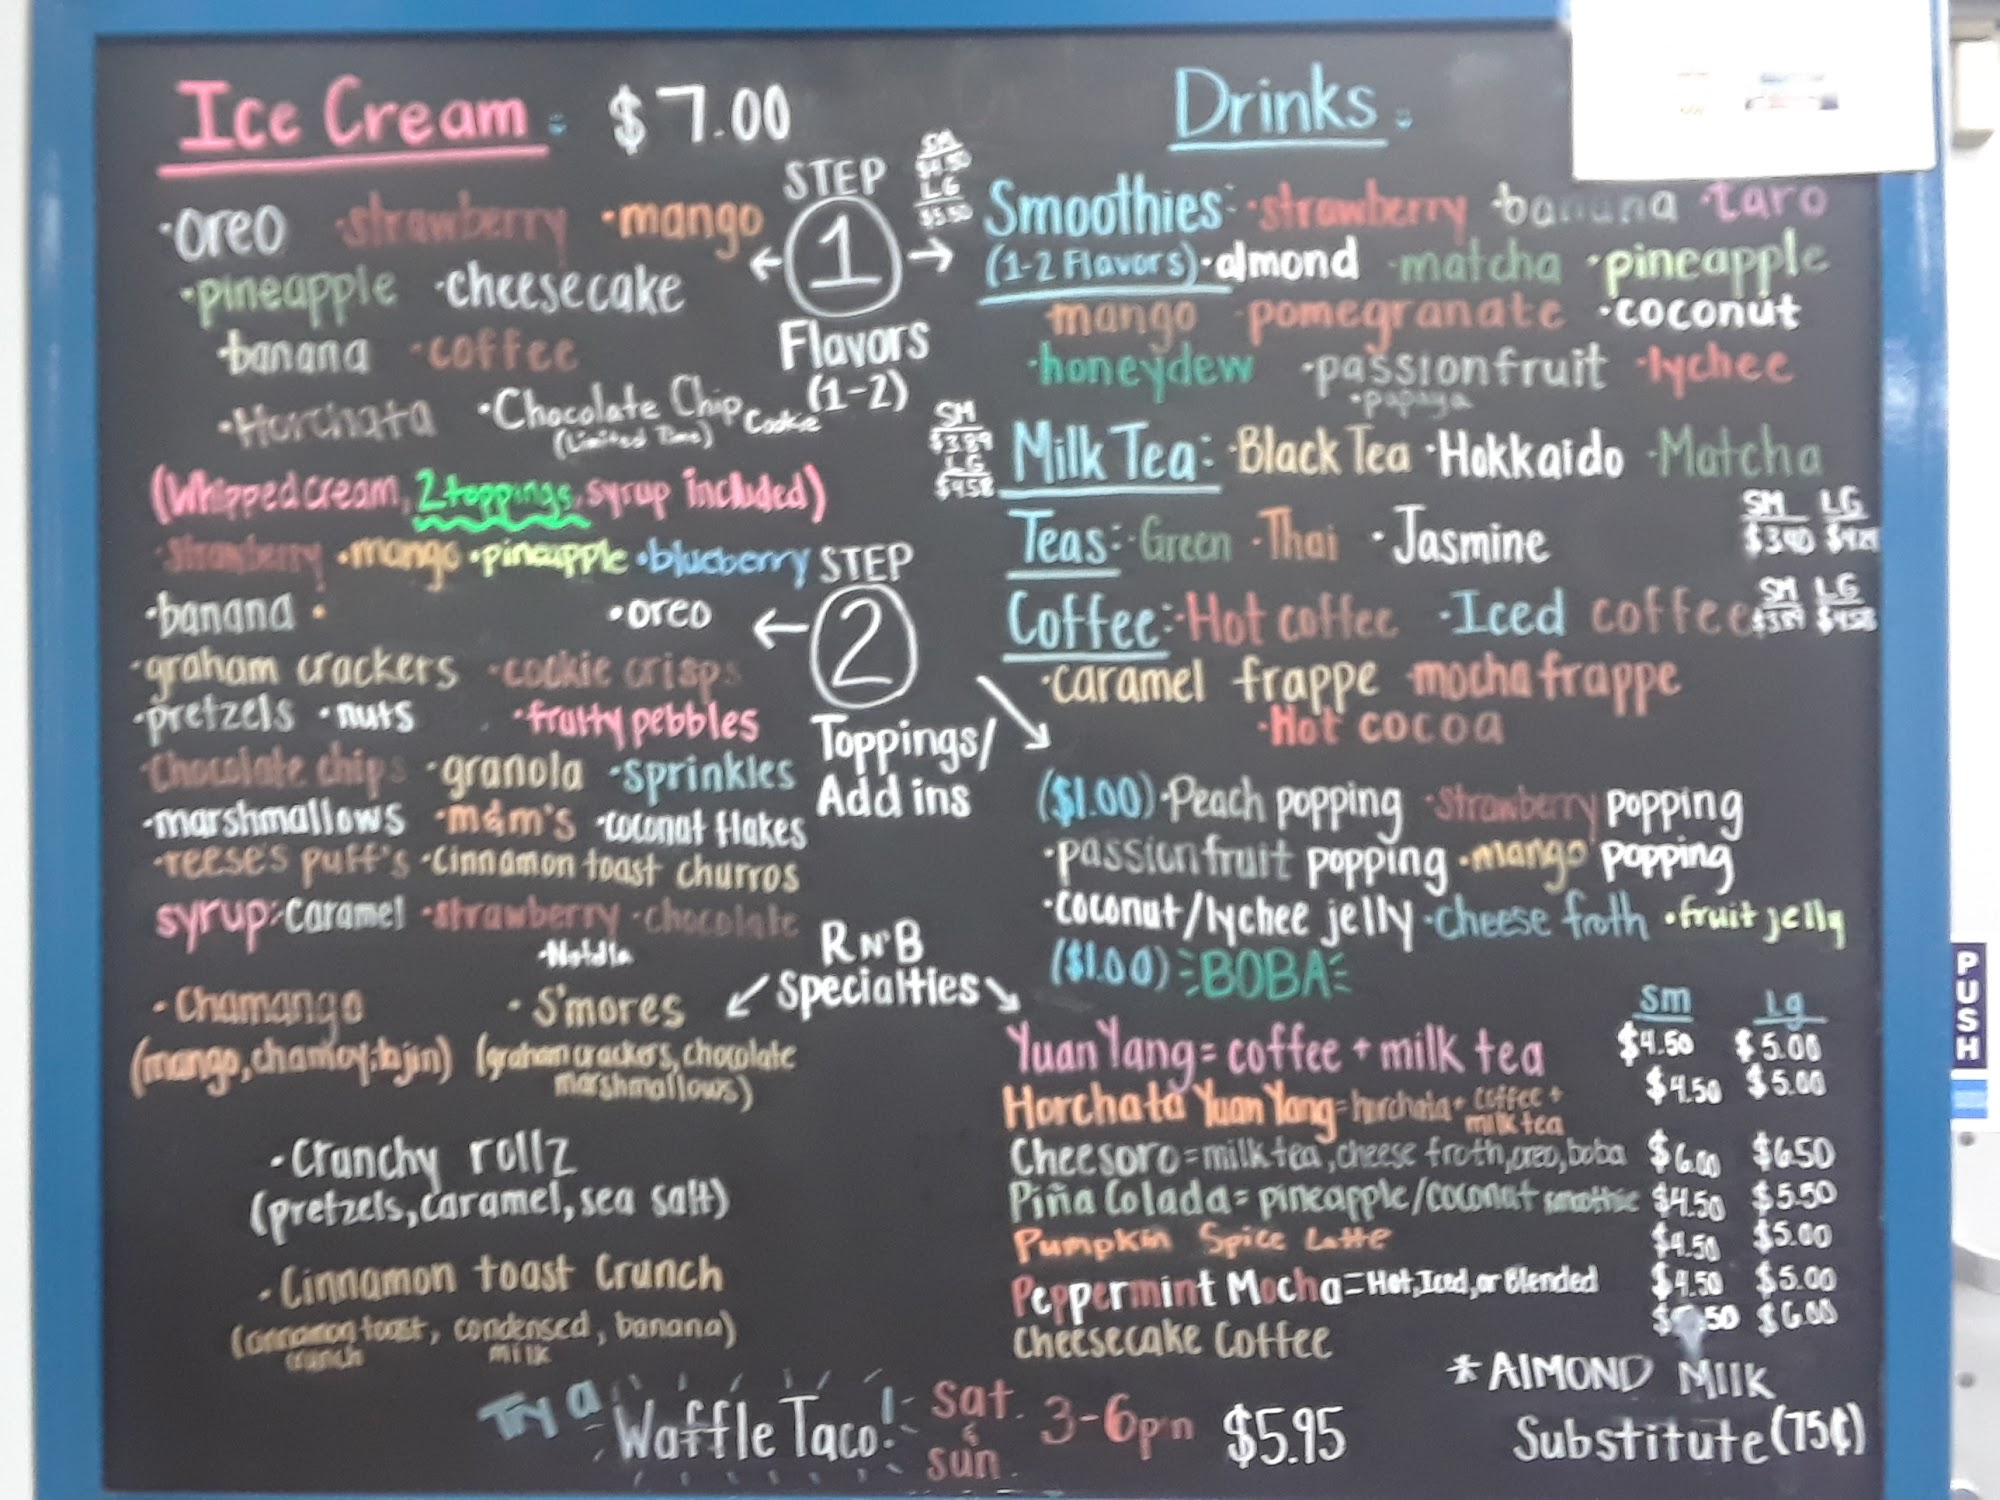 Ice Cream: $7.00
STEP
1
Flavors
(1-2)
·oreo ·strawberry ·mango
·pineapple ·cheesecake
·banana ·coffee
·Horchata ·Chocolate Chip Cookie
(Limited Time)
(Whipped cream, 2 toppings, syrup included)
·strawberry ·mango ·pineapple ·blueberry
·banana · ·oreo
·graham crackers ·cookie crisps
·pretzels ·nuts ·fruity pebbles
·Chocolate chips ·granola ·sprinkles
·marshmallows ·m&m's ·coconut flakes
·reese's puff's ·Cinnamon toast churros
syrup: caramel ·strawberry ·chocolate
STEP
2
Toppings/
Add ins
RN'B
Specialties
·Chamango
(mango, chamoy, tajin)
·S'mores
(graham crackers, chocolate
marshmallows)
·Crunchy rollz
(pretzels, caramel, sea salt)
·Cinnamon toast Crunch
(cinnamon toast, condensed, banana)
crunch milk
Try a Waffle Taco! Sat. & Sun. 3-6pm $5.95
Drinks:
SM
$4.50
LG
$5.50
Smoothies: ·strawberry banana taro
(1-2 Flavors) ·almond ·matcha ·pineapple
mango pomegranate ·coconut
·honeydew ·passionfruit ·lychee
·papaya
SM
$3.89
LG
$4.58
Milk Tea: ·Black Tea ·Hokkaido ·Matcha
SM LG
Teas: ·Green ·Thai ·Jasmine
SM LG
Coffee: ·Hot coffee ·Iced coffee $4.58
·caramel frappe mocha frappe
·Hot cocoa
($1.00) ·Peach popping ·Strawberry popping
·passionfruit popping ·mango popping
·coconut/lychee jelly ·cheese froth ·fruit jelly
($1.00) BOBA
Sm Lg
Yuan Yang = coffee + milk tea $4.50 $5.00
Horchata Yuan Yang = horchata + coffee + milk tea $4.50 $5.00
Cheesoro = milk tea, cheese froth, oreo, boba $6.00 $6.50
Piña Colada = pineapple/coconut smoothie $4.50 $5.50
Pumpkin Spice Latte $4.50 $5.00
Peppermint Mocha = Hot, Iced, or Blended $4.50 $5.00
Cheesecake Coffee $6.00
*AlMOND Milk
Substitute (75¢)
PUSH